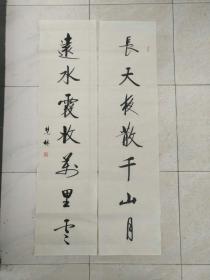 長天夜散千山月
遠水霞收萬里雲